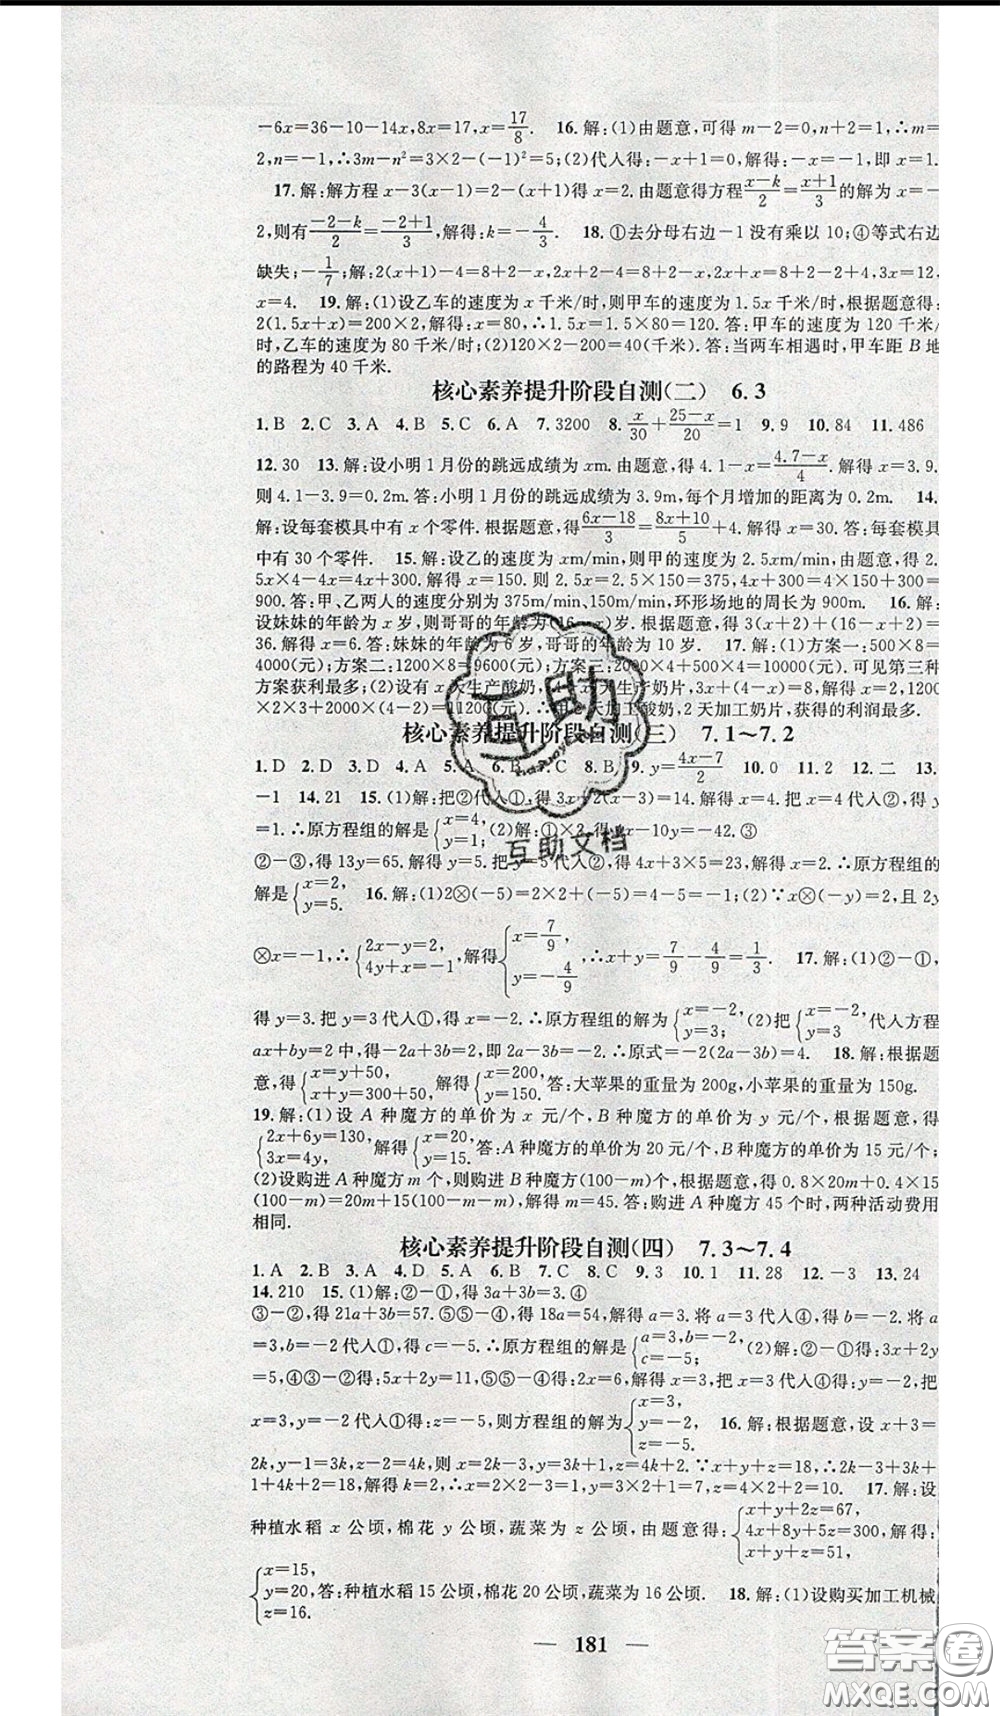 −6x=36−10−14x,8x=17,x=17/8. 16.解:(1)由题意,可得 m−2=0,n+2=1,∴m=
2,n=−1,∴3m−n²=3×2−(−1)²=5;(2)代入得:−x+1=0,解得:−x=−1,即 x=1.
17.解:解方程 x−3(x−1)=2−(x+1)得 x=2.由题意得方程(x−k)/2=(x+1)/3的解为 x=−
2,则有(−2−k)/2=(−2+1)/3,解得:k=−4/3. 18.①去分母右边−1没有乘以10;④等式右边
缺失;−1/7;解:2(x+1)−4=8+2−x,2x+2−4=8+2−x,2x+x=8+2−2+4,3x=12,
x=4. 19.解:(1)设乙车的速度为 x 千米/时,则甲车的速度为 1.5x 千米/时,根据题意得:
2(1.5x+x)=200×2,解得:x=80,∴1.5x=1.5×80=120.答:甲车的速度为 120 千米/
时,乙车的速度为 80 千米/时;(2)120×2−200=40(千米).答:当两车相遇时,甲车距 B 地
的路程为 40 千米.
核心素养提升阶段自测(二) 6.3
1.B 2.C 3.A 4.B 5.C 6.A 7.3200 8.x/30+(25−x)/20=1 9.9 10.84 11.486
12.30 13.解:设小明 1 月份的跳远成绩为 xm.由题意,得 4.1−x=(4.7−x)/4.解得 x=3.9.
则 4.1−3.9=0.2m.答:小明 1 月份的跳远成绩为 3.9m,每个月增加的距离为 0.2m. 14.
解:设每套模具中有 x 个零件.根据题意,得(6x−18)/3=(8x+10)/5+4.解得 x=30.答:每套模具
中有 30 个零件. 15.解:设乙的速度为 xm/min,则甲的速度为 2.5xm/min,由题意,得 2.
5x×4−4x=4x+300.解得 x=150.则 2.5x=2.5×150=375,4x+300=4×150+300=
900.答:甲、乙两人的速度分别为 375m/min、150m/min,环形场地的周长为 900m. 16.解:
设妹妹的年龄为 x 岁,则哥哥的年龄为(16−x)岁.根据题意,得 3(x+2)+(16−x+2)=
36.解得 x=6.答:妹妹的年龄为 6 岁,哥哥的年龄为 10 岁. 17.解:(1)方案一:500×8=
4000(元);方案二:1200×8=9600(元);方案三:2000×4+500×4=10000(元).可见第三种
方案获利最多;(2)设有 x 天生产酸奶,(4−x)天生产奶片,3x+(4−x)=8,解得 x=2.1200
×2×3+2000×(4−2)×1=11200(元).∴2 天加工酸奶,2 天加工奶片,获得的利润最多.
核心素养提升阶段自测(三) 7.1~7.2
1.D 2.D 3.D 4.A 5.A 6.B 7.C 8.B 9.y=(4x−7)/2 10.0 11.2 12.二 13.
−1 14.21 15.(1)解:把②代入①,得 3x+2(x−3)=14.解得 x=4.把 x=4 代入②,得 y
=1.∴原方程组的解是{x=4,y=1;(2)解:①×2,得 4x−10y=−42.③
②−③,得 13y=65.解得 y=5.把 y=5 代入②,得 4x+3×5=23,解得 x=2.∴原方程组的
解是{x=2,y=5. 16.解:(1)2⊗(−5)=2×2+(−5)=4−5=−1;(2)∵x⊗(−y)=2,且 2y
⊗x=−1,∴{2x−y=2,4y+x=−1,解得{x=7/9,y=−4/9,∴x+y=7/9−4/9=1/3. 17.解:(1)②−①,
得 y=3.把 y=3 代入①,得 x=−2.∴原方程组的解为{x=−2,y=3;(2)把{x=−2,y=3代入方程
ax+by=2 中,得−2a+3b=2,即 2a−3b=−2.∴原式=−2(2a−3b)=4. 18.解:根据题
意,得{x=y+50,x+y=300+50,解得{x=200,y=150.答:大苹果的重量为 200g,小苹果的重量为 150g.
19.解:(1)设 A 种魔方的单价为 x 元/个,B 种魔方的单价为 y 元/个,根据题意,得
{2x+6y=130,3x=4y,解得{x=20,y=15.答:A 种魔方的单价为 20 元/个,B 种魔方的单价为 15 元/个;
(2)设购进 A 种魔方 m 个,则购进 B 种魔方(100−m)个,根据题意,得 0.8×20m+0.4×15
(100−m)=20m+15(100−m−m),解得 m=45.答:购进 A 种魔方 45 个时,两种活动费用
相同.
核心素养提升阶段自测(四) 7.3~7.4
1.A 2.B 3.A 4.D 5.A 6.D 7.C 8.C 9.3 10.1 11.28 12.−3 13.24
14.210 15.(1)解:②−①,得 3a+3b=3.④
③−②,得 21a+3b=57.⑤⑤−④,得 18a=54,解得 a=3.将 a=3 代入④,得 b=−2.将 a=
3,b=−2 代入①,得 c=−5.∴原方程组的解是{a=3,b=−2,c=−5;(2)解:②−①得:3x+2y
=5,④③−②得:5x+2y=11,⑤⑤−④得:2x=6,解得 x=3,把 x=3 代入④得:y=−2,把
x=3,y=−2 代入①得:z=−5,则方程组的解为{x=3,y=−2,z=−5. 16.解:根据题意,设 x+3=
2k,y−1=3k,z−2=4k,则 x=2k−3,y=3k+1,z=4k+2.∵x+y+z=18,∴2k−3+3k+1
+4k+2=18,解得 k=2,∴x=2×2−3=1,y=3×2+1=7,z=4×2+2=10. 17.解:设
种植水稻 x 公顷,棉花 y 公顷,蔬菜为 z 公顷,由题意得:{x+y+2z=67,4x+8y+5z=300,x+y+z=51,解得:
{x=15,y=20,z=16.答:种植水稻 15 公顷,棉花 20 公顷,蔬菜为 16 公顷. 18.解:(1)设购买加工机械
— 181 —
互助
互助文档
答案卷
MXQE.COM